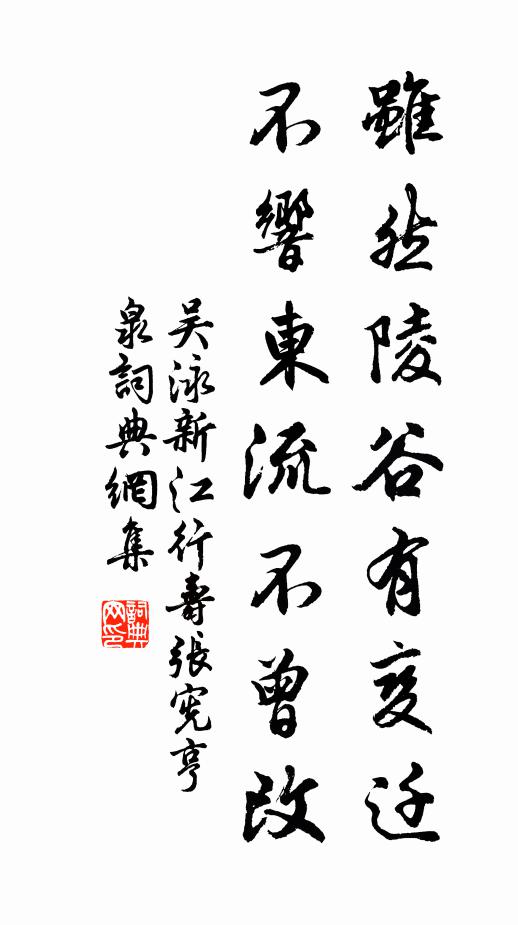 雖然陵谷有变迁
不響東流不曾改
吴泳新江行壽張宪亨
泉詞典網集
詞典网印